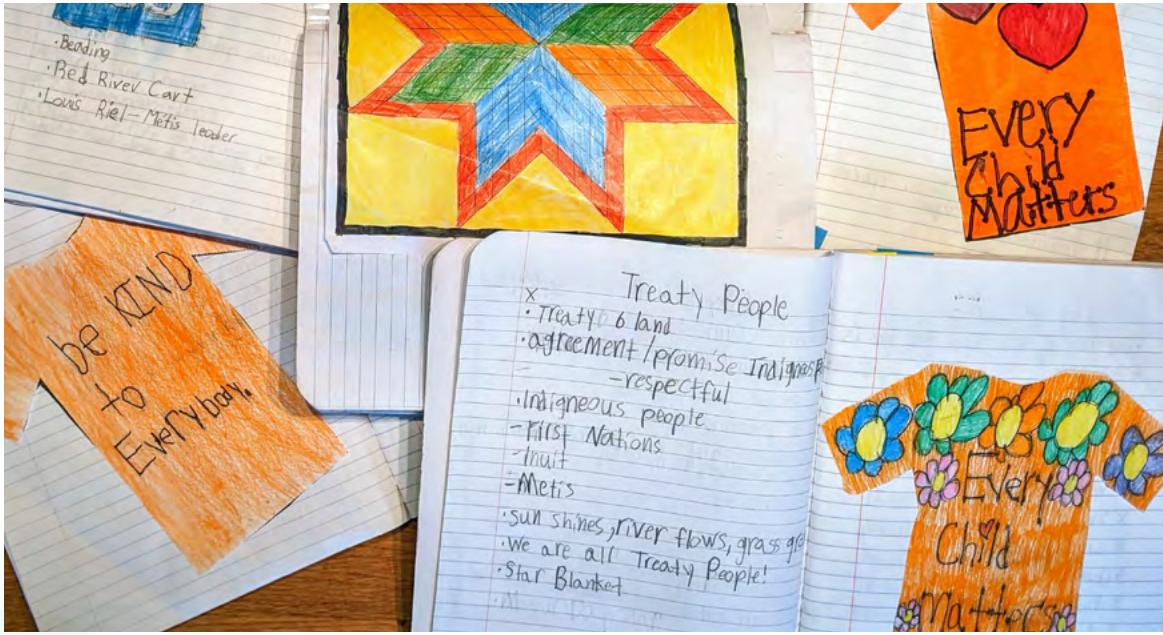 ·Beading
·Red River Cart
·Louis Riel - Métis leader
Every
Child
Matters
be KIND
to
Everybody.
Treaty People
x
·Treaty 6 land
·agreement/promise
-respectful
·Indigneous people
-First Nations
-Inuit
-Metis
·sun shines, river flows, grass
·We are all Treaty People!
·Star Blanket
Every
Child
Matters